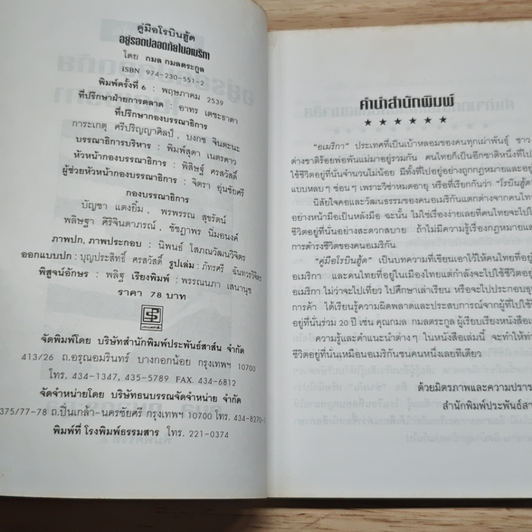 คู่มือโรบินฮู้ด
อยู่รอดปลอดภัยในอเมริกา
โดย กมล กมลตระกูล
ISBN 974-230-551-2
พิมพ์ครั้งที่ 6 : พฤษภาคม 2539
ที่ปรึกษาฝ่ายการตลาด : อาทร เตชะธาดา
ที่ปรึกษากองบรรณาธิการ
การะเกตุ ศรีปริญญาศิลป์, บงกช จินตะนะ
บรรณาธิการบริหาร : พิมพ์สุดา เนตรดาว
หัวหน้ากองบรรณาธิการ : พิสิษฐ์ ศรสวัสดิ์
ผู้ช่วยหัวหน้ากองบรรณาธิการ : จิตรา อุ่นชัยศรี
กองบรรณาธิการ
บัญชา แดงยิ้ม, พรพรรณ สุขรัตน์
พลิษฐา ศิริจินดาภรณ์, ชัชฎาพร นิ่มอนงค์
ภาพปก, ภาพประกอบ : นิพนธ์ โสภณวัฒนวิจิตร
ออกแบบปก : บุญประสิทธิ์ ศรสวัสดิ์ รูปเล่ม : ภัทรศรี
พิสูจน์อักษร : พลิฐ เรียงพิมพ์ : พรรณนภา เสนานุช
ราคา 78 บาท
จัดพิมพ์โดย บริษัทสำนักพิมพ์ประพันธ์สาส์น จำกัด
413/26 ถ.อรุณอมรินทร์ บางกอกน้อย กรุงเทพฯ 10700
โทร. 434-1347, 435-5789 FAX. 434-6812
จัดจำหน่ายโดย บริษัทอนบรรณจัดจำหน่าย จำกัด
375/77-78 ถ.ปิ่นเกล้า-นครชัยศรี กรุงเทพฯ 10700 โทร. 434-8270-1
พิมพ์ที่ โรงพิมพ์อรรมสาร โทร. 221-0374
คำนำสำนักพิมพ์
★ ★ ★ ★ ★ ★
"อเมริกา" ประเทศที่เป็นเป้าหลอมของคนทุกเผ่าพันธุ์ ชาว
ต่างชาติร้อยพ่อพันแม่มาอยู่รวมกัน คนไทยก็เป็นอีกชาติหนึ่งที่ไป
ใช้ชีวิตอยู่ที่นั่นจำนวนไม่น้อย มีทั้งที่ไปอยู่อย่างถูกกฎหมายและอยู่
แบบหลบ ๆ ซ่อน ๆ เพราะวีซ่าหมดอายุ หรือที่เรียกกันว่า "โรบินฮู้ด"
นิสัยใจคอและวัฒนธรรมของคนอเมริกันแตกต่างจากคนไทย
อย่างหน้ามือเป็นหลังมือ ฉะนั้น ไม่ใช่เรื่องง่ายเลยที่คนไทยจะไป
ใช้ชีวิตอยู่ที่นั่นอย่างสะดวกสบาย ถ้าไม่มีความรู้เรื่องกฎหมายและ
การดำรงชีวิตของคนอเมริกัน
"คู่มือโรบินฮู้ด" เป็นบทความที่เขียนเอาไว้ให้คนไทยที่อยู่
อเมริกา และคนไทยที่อยู่ในเมืองไทยแต่กำลังจะไปใช้ชีวิตอยู่
อเมริกา ไม่ว่าจะไปเที่ยว ไปศึกษาเล่าเรียน หรือจะไปประกอบธุร
การค้า ได้เรียนรู้ความผิดพลาดและประสบการณ์จากผู้ที่ไปใช้
อยู่ที่นั่นร่วม 20 ปี เช่น คุณกมล กมลตระกูล ผู้เรียบเรียงหนังสือเ
ความรู้และคำแนะนำต่าง ๆ ในหนังสือเล่มนี้ จะทำให้ท่า
ชีวิตอยู่ที่นั่นเหมือนอเมริกันชนคนหนึ่งเลยทีเดียว
ด้วยมิตรภาพและความปรา
สำนักพิมพ์ประพันธ์สา